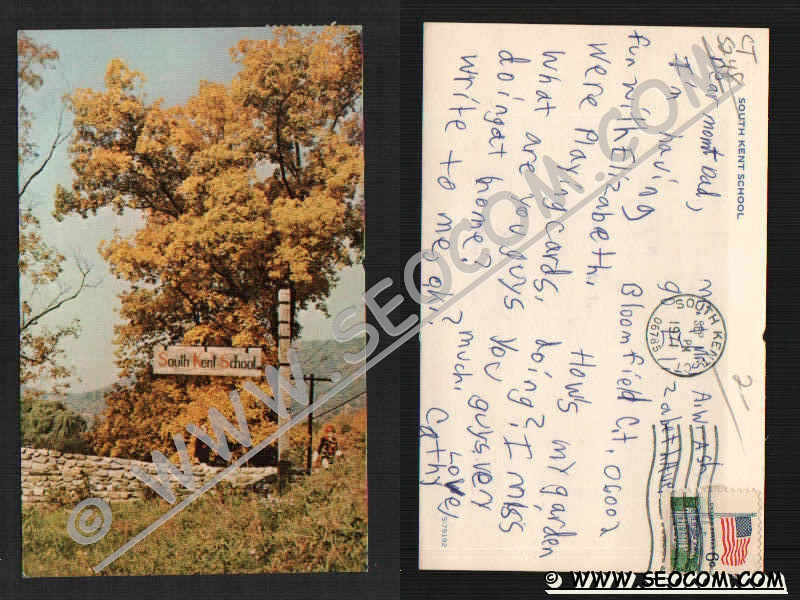 South Kent School
© WWW.SEOCOM.COM
CT
SOUTH KENT SCHOOL
Dear mom + Dad,
I'm having
fun with Elizabeth.
were Playing cards.
Hows my garden
What are you guys doing? I miss
doing at home? You guys very
write to me OK? much.
Love,
Cathy
Bloomfield Ct. 06002
SOUTH KENT
PM
1971
06785
2-
6c
S79192
© WWW.SEOCOM.COM
© WWW.SEOCOM.COM